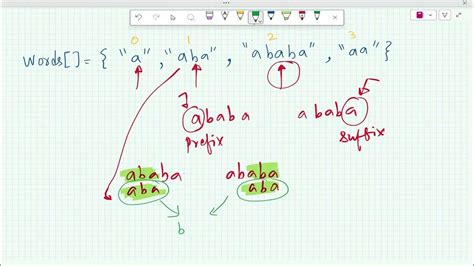 0 1 2 3
words[] = { "a" , "aba" , "ababa" , "aa" }
ababa ababa
prefix suffix
ababa ababa
aba aba
b